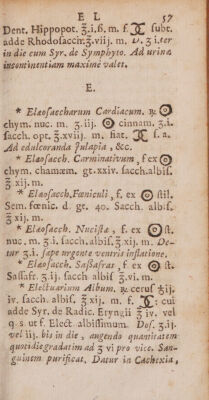 E L 57
Dent. Hippopot. ʒ.i.6. m. f. subt.
adde Rhodosaccin ʒ.viij. m. D. ʒ iter
in die cum Syr. de Symphyto. Ad urinæ
incontinentiam maximè valet.
E.
* Elæosaccharum Cardiacum. ℞ ☉
chym. nuc. m. ʒ.iij. ☉ cinnam. ʒ.i.
sacch. opt. ℥.xviij. m. fiat. f. a.
Ad edulcoranda Julapia, &c.
* Elæosacch. Carminativum, f. ex ☉
chym. chamæm. gt. xxiv. sacch.albis.
℥ xij. m.
* Elæosacch. Fœniculi, f. ex ☉ stil.
Sem. fœnic. d. gt. 40. Sacch. albis.
℥ xij. m.
* Elæosacch. Nucistæ, f. ex ☉ st.
nuc. m. ʒ.i. sacch.albis. ℥ xij. m. De-
tur ʒ.i. sæpe urgente ventris inflatione.
* Elæosacch. Sassafras, f. ex ☉ st.
Sassafr. ʒ.ij. sacch albis ℥.vi. m.
* Electuarium Album. ℞ cerus ℥ij.
iv. sacch. albis. ℥ xij. m. f. : cui
adde Syr. de Radic. Eryngii ℥ iv. vel
q s ut f. Elect. albissimum. Dos. ʒ.ij.
vel iij. bis in die, augendo quantitatem
quotidie gradatim ad ʒ vi pro vice. San-
guinem purificat. Datur in Cachexia,